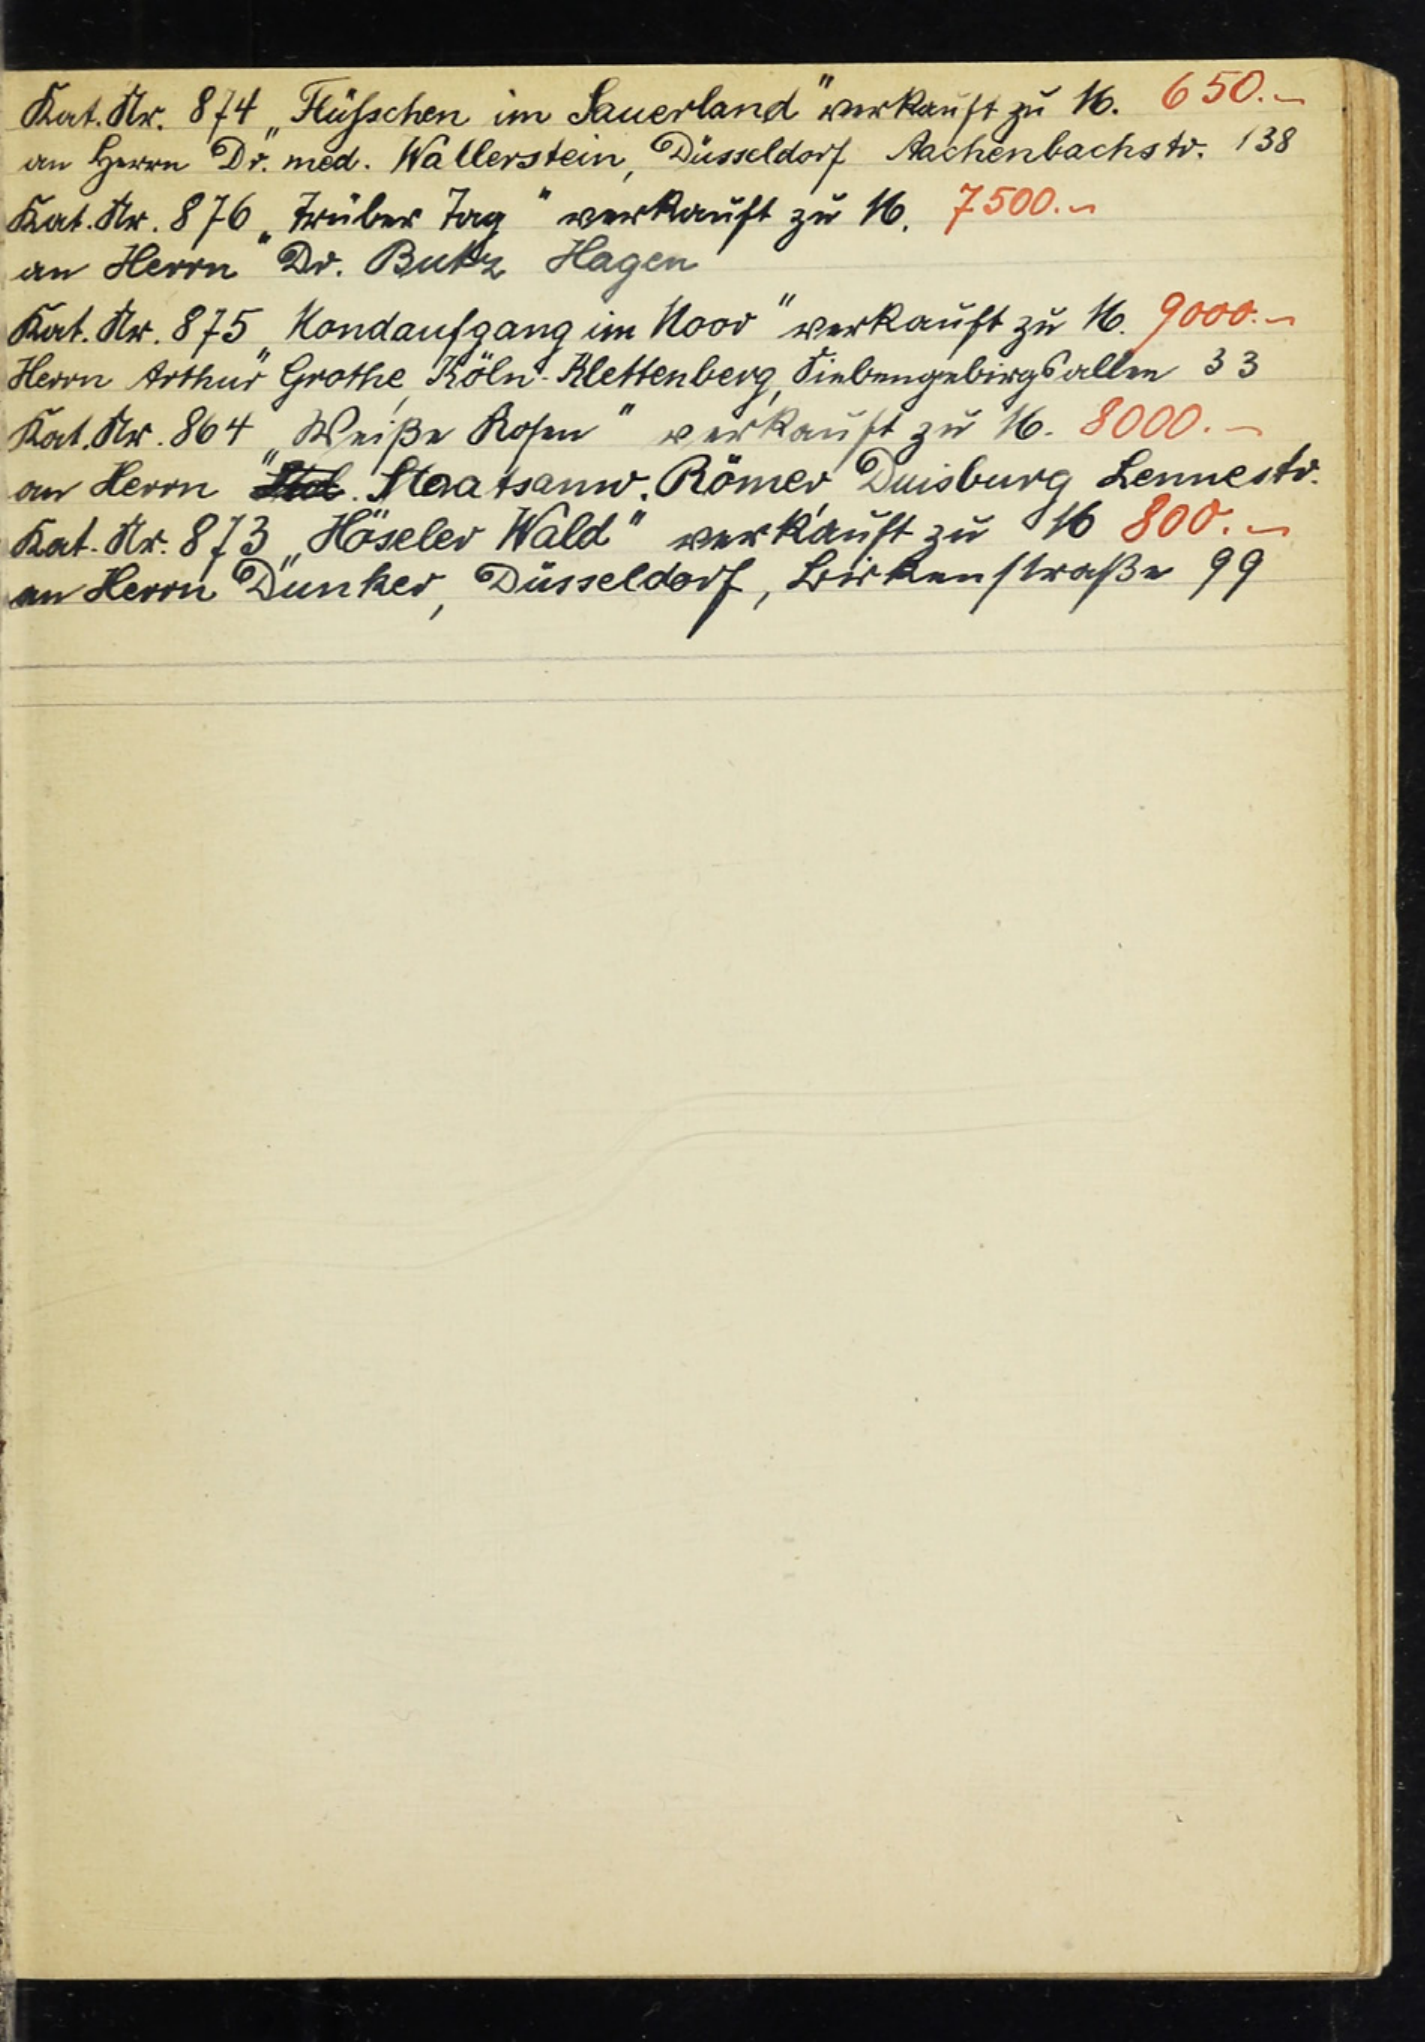 Kat. Nr. 874 „Flüsschen im Sauerland" verkauft zu M. 650.–
an Herrn Dr. med. Wallerstein, Düsseldorf Aachenbachstr. 138
Kat. Nr. 876 „Trüber Tag" verkauft zu M. 7500.–
an Herrn Dr. Butz Hagen
Kat. Nr. 875 „Mondaufgang im Moor" verkauft zu M. 9000.–
Herrn Arthur Grothe, Köln-Klettenberg, Siebengebirgsallee 33
Kat. Nr. 864 „Weiße Rosen" verkauft zu M. 8000.–
an Herrn Staatsanw. Römer Duisburg Lennestr.
Kat. Nr. 873 „Höseler Wald" verkauft zu M 800.–
an Herrn Dunker, Düsseldorf, Birkenstraße 99